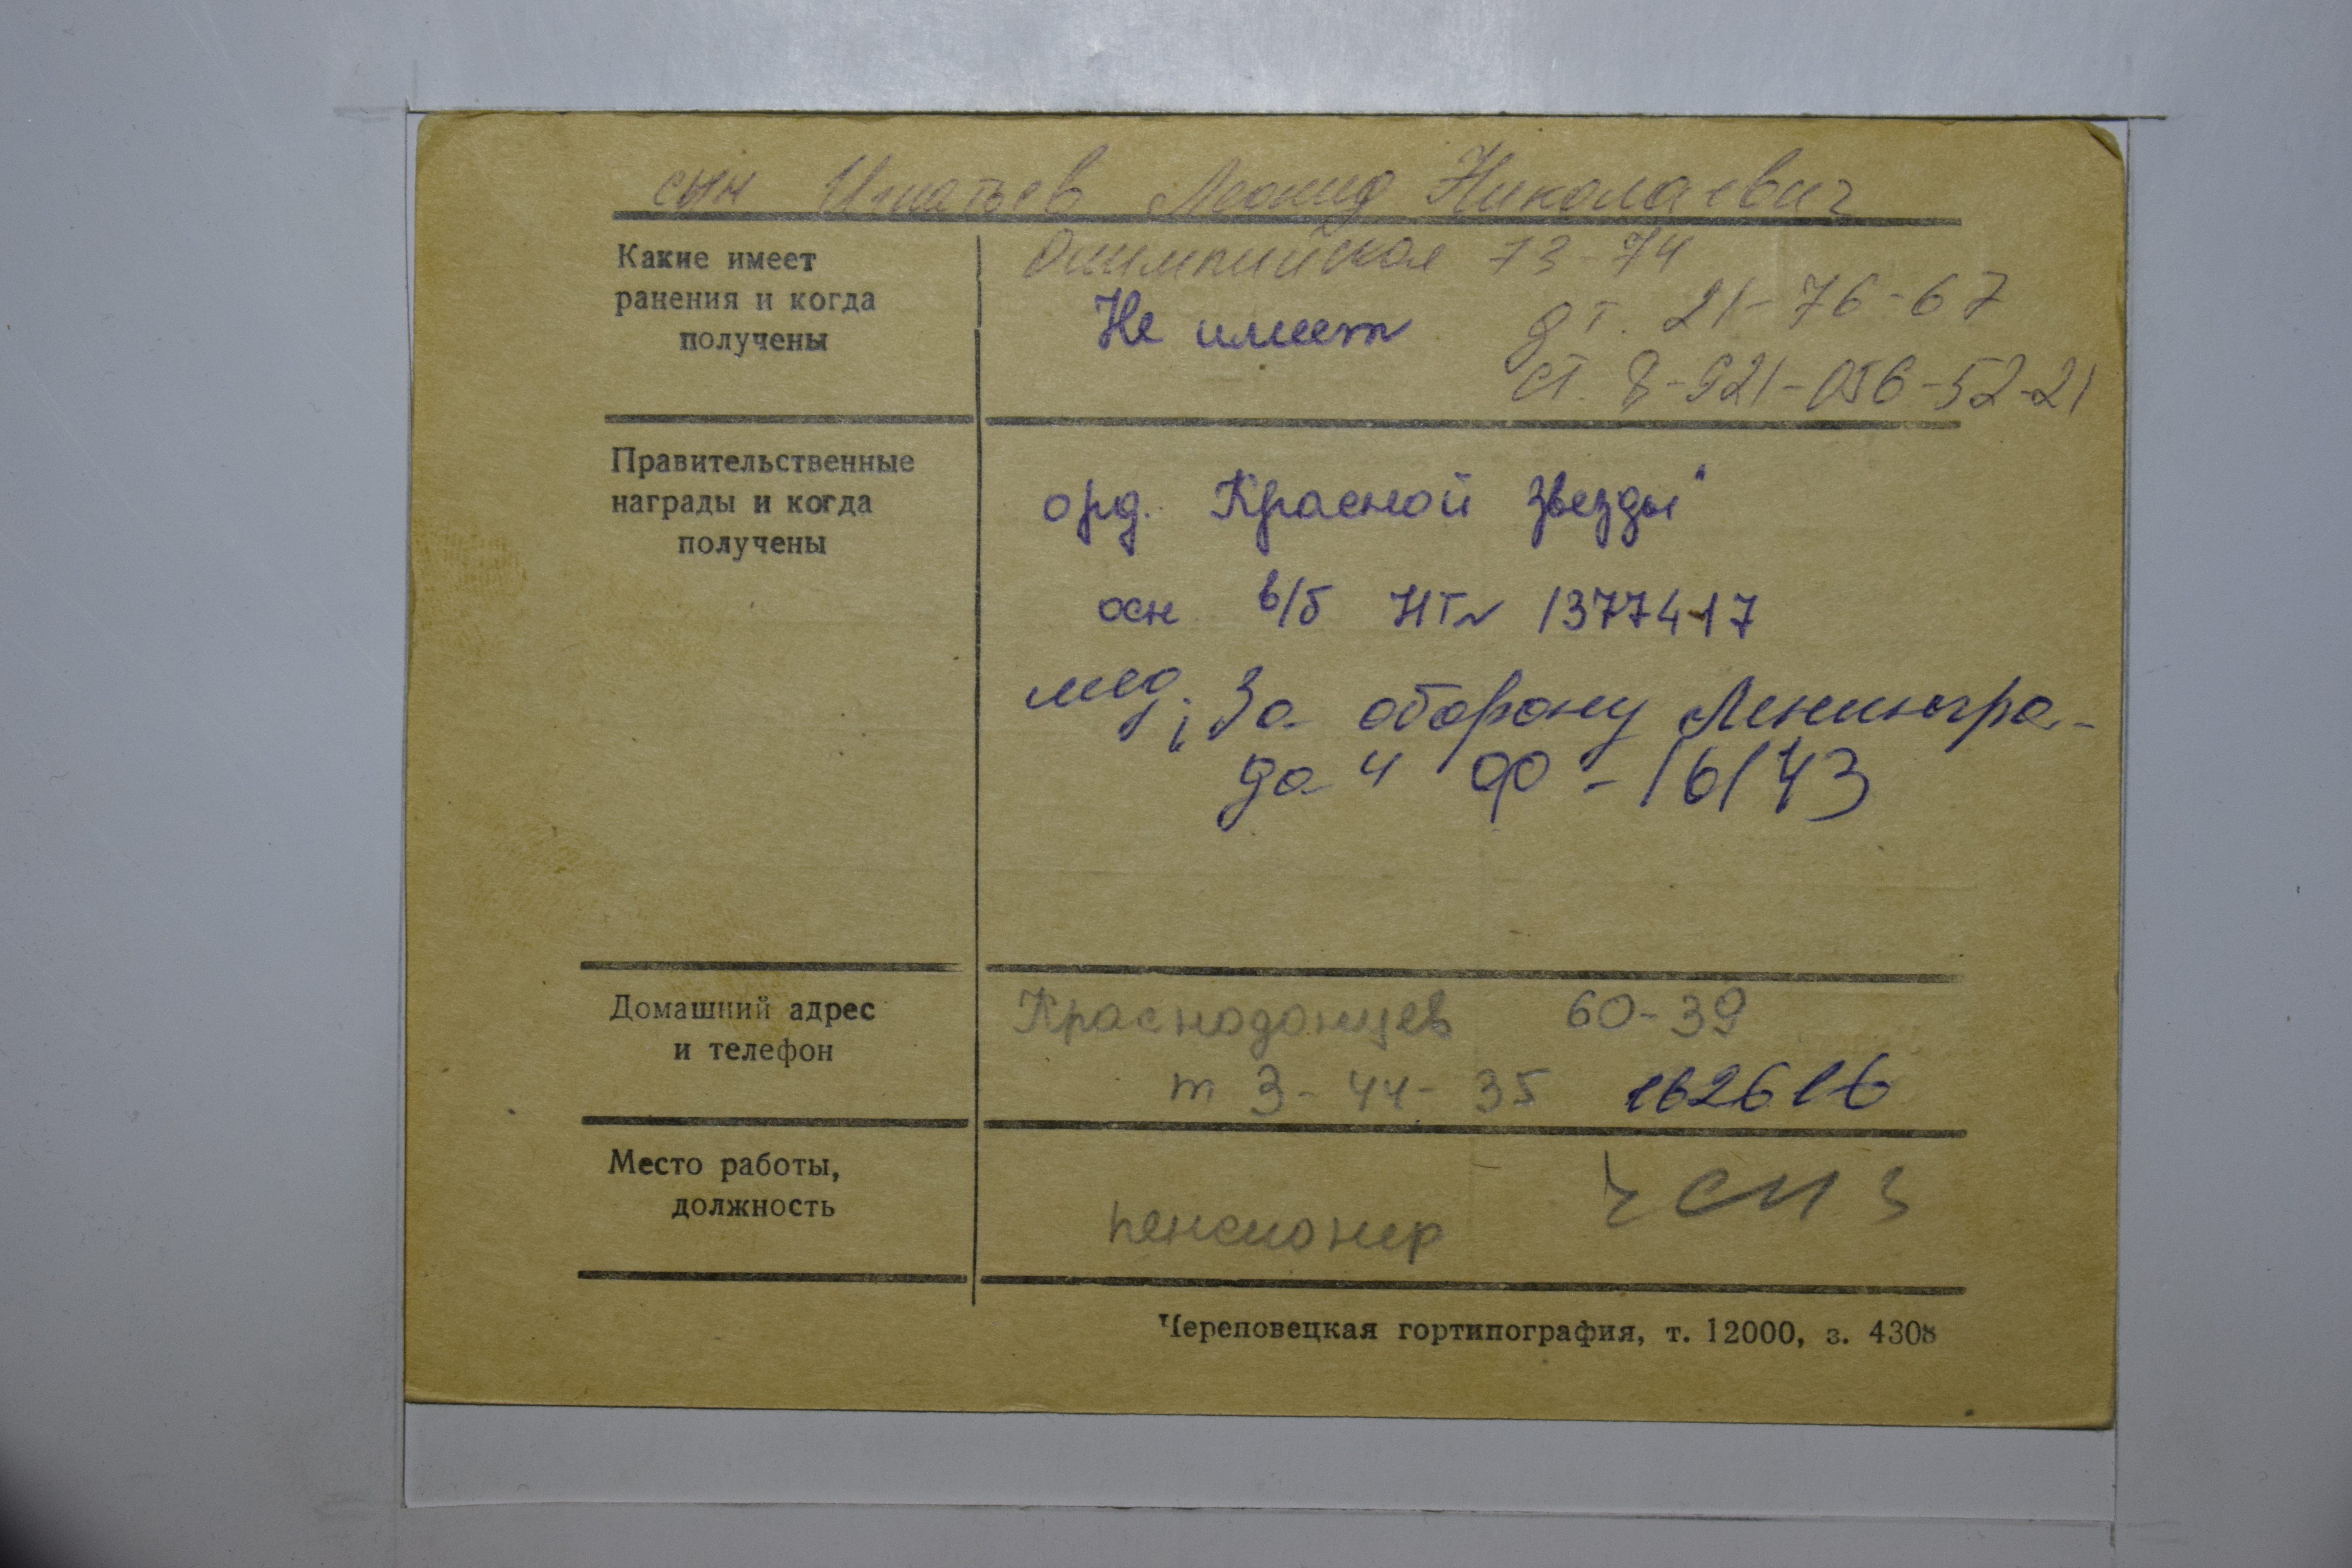 сын Игнатьев Леонид Николаевич
Олимпийская 73-74
Какие имеет
ранения и когда
получены
Не имеет
дт. 21-76-67
ст. 8-921-056-52-21
Правительственные
награды и когда
получены
орд. Красной звезды"
осн в/б НГ№ 1377417
мед. „За оборону Ленингра-
да" ФФ - 16143
Домашний адрес
и телефон
Краснодонцев 60-39
т 3-44-35 162616
Место работы,
должность
пенсионер
Череповецкая гортипография, т. 12000, з. 4308